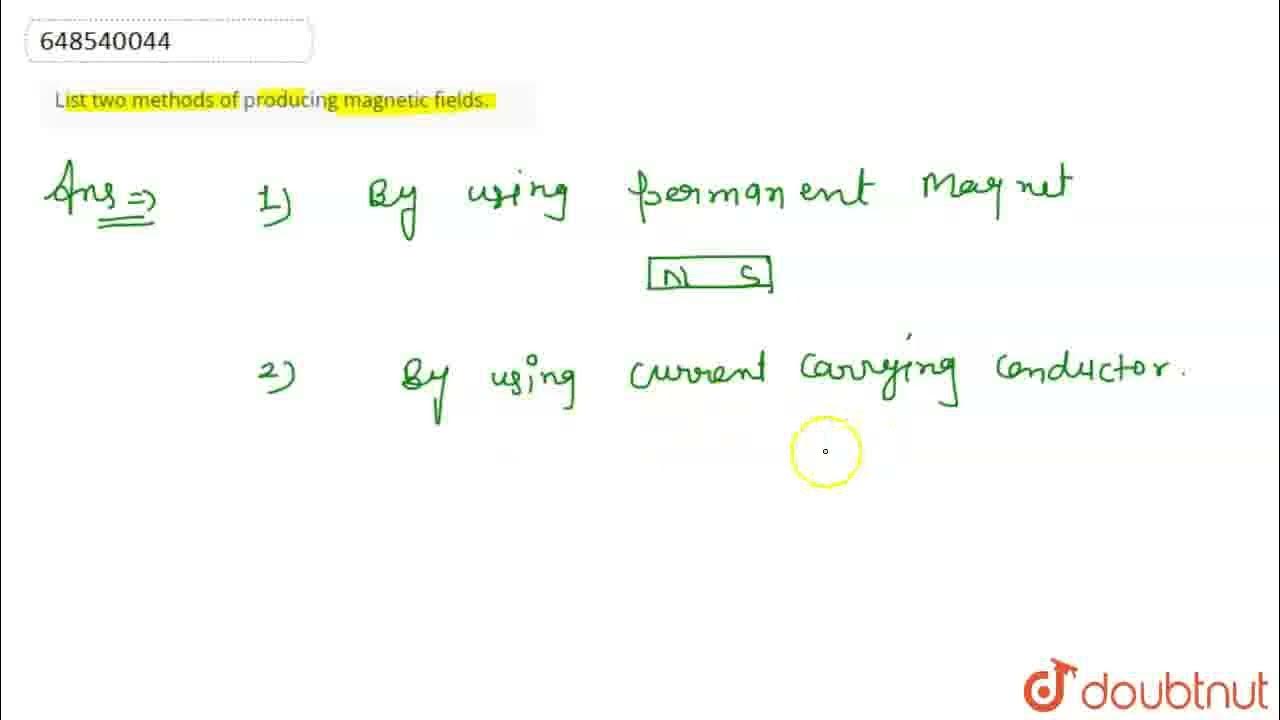 648540044
List two methods of producing magnetic fields.
Ans => 1) By using permanent Magnet
N S
2) By using current carrying conductor.
doubtnut